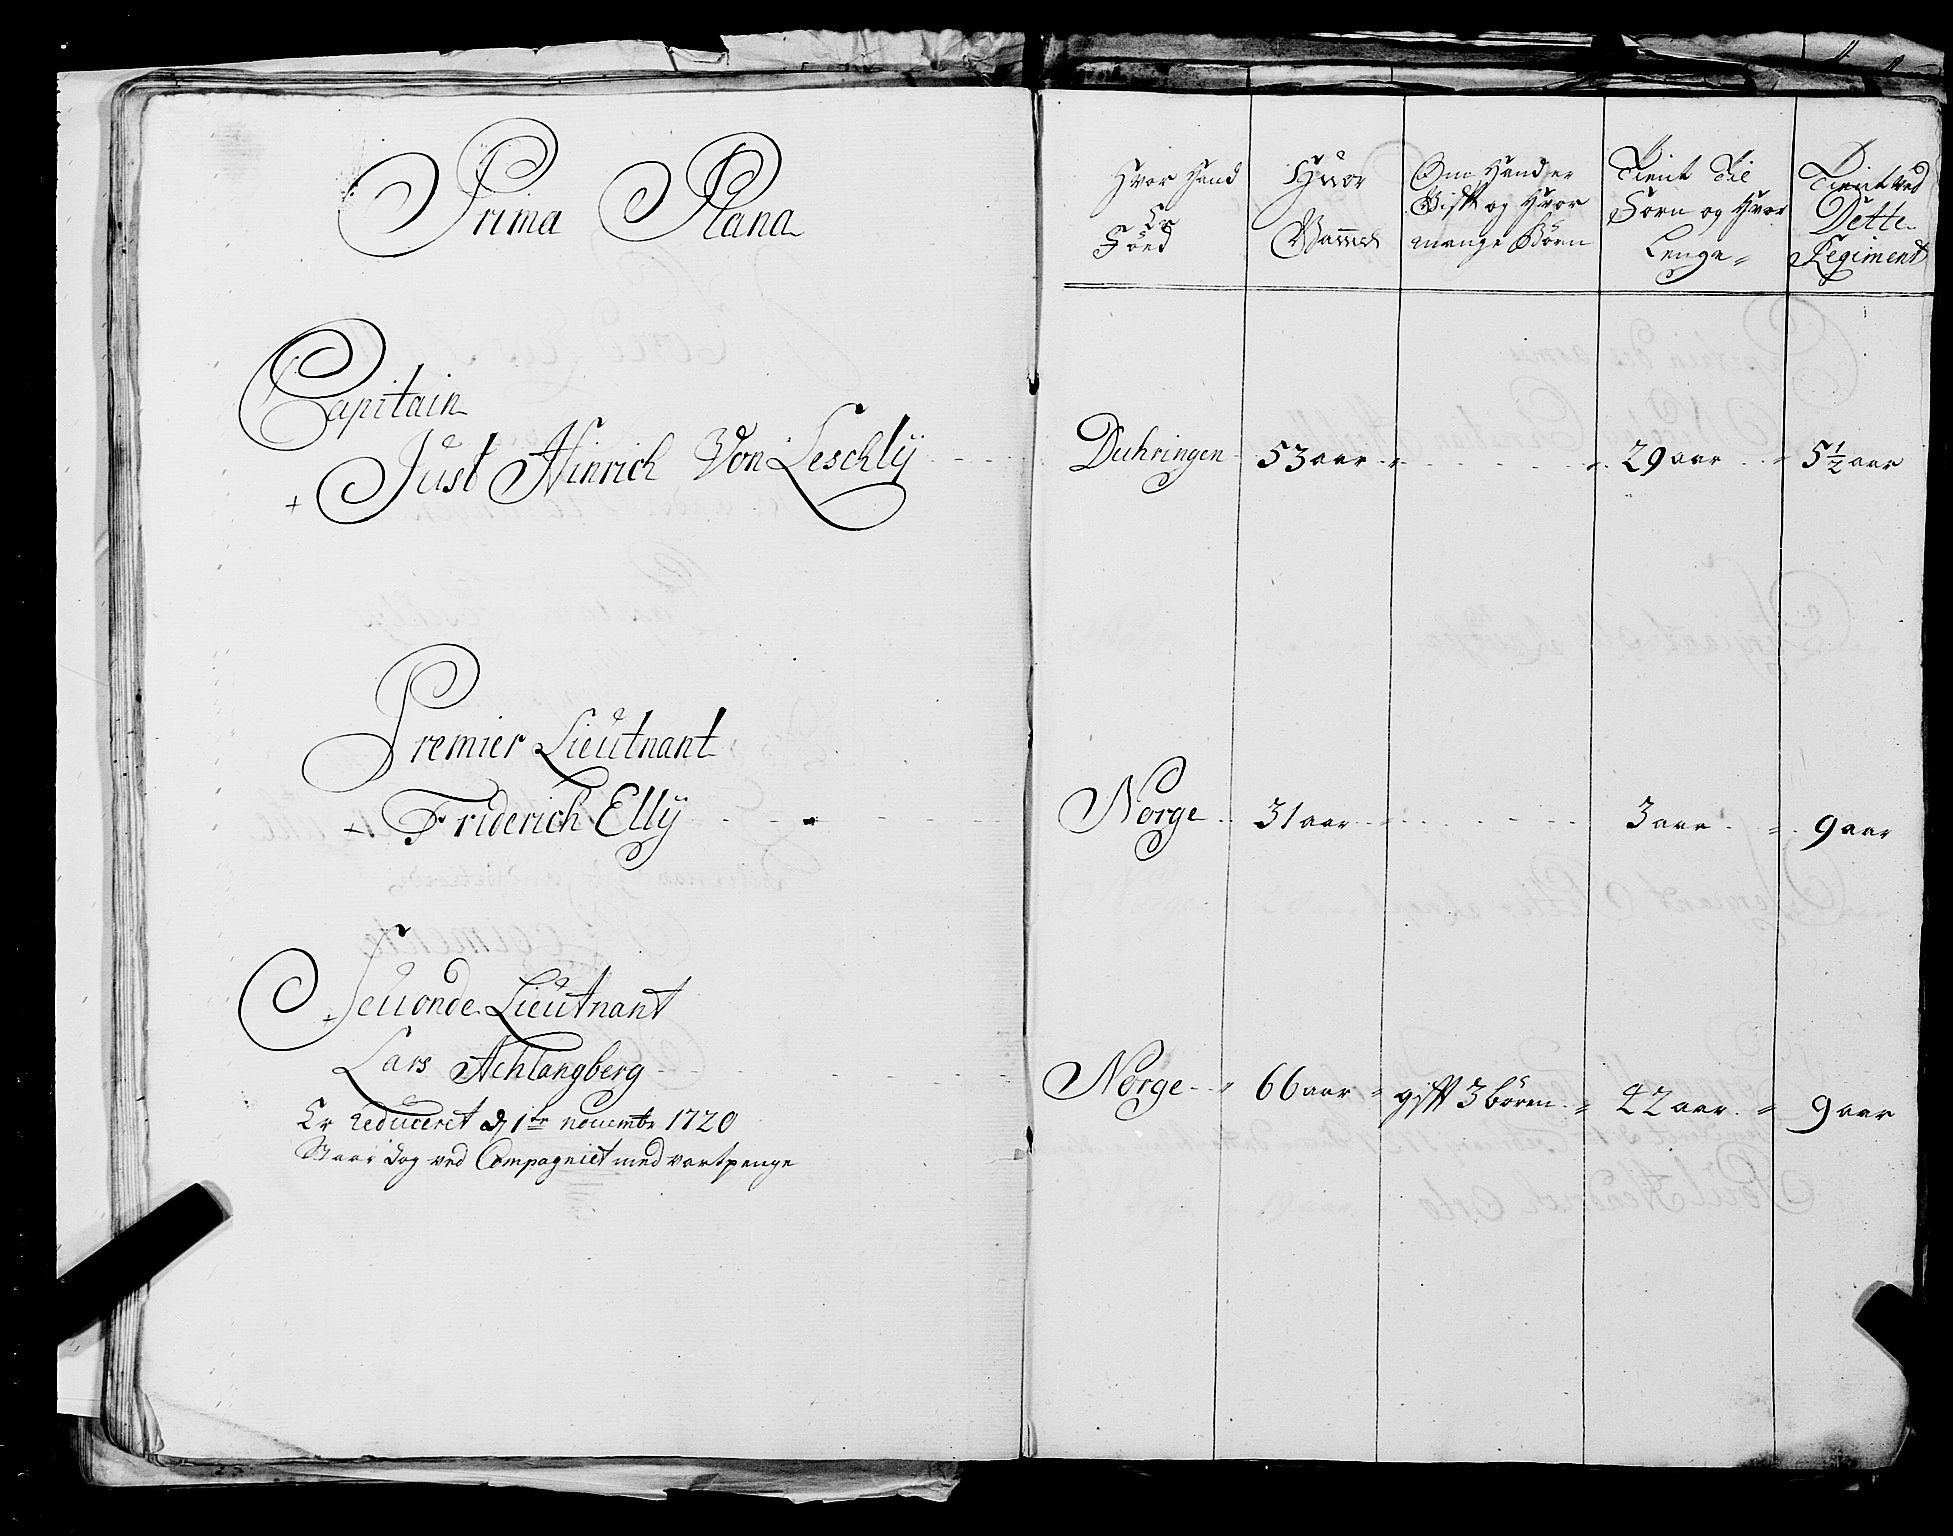 Prima Plana
Capitain
+ Just Hinrich Von Leschly
Premier Lieutnant
+ Friderich Elly
+ Secionde Lieutnant
Lars Achlangberg
Er reduceret d 1te novembr 1720
Staar dog ved Compagniet med vartpenge
Hvor Hand
Er
Föed
Huor
Gammel
Om Hand er
Gift og Hvor
mange Börn
Tient Til
Forn og Hvor
Lenge
Tient ved
Dette
Regiment
Duhringen 53 aar 29 aar 5 1/2 aar
Norge 31 aar 3 aar 9 aar
Norge 66 aar gift 3 bören 22 aar 9 aar